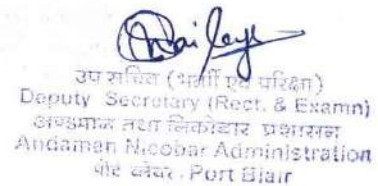 उप सचिव (भर्ती एवं परीक्षा)
Deputy Secretary (Rect. & Examn)
अण्डमान तथा निकोबार प्रशासन
Andaman Nicobar Administration
पोर्ट ब्लेयर. Port Blair